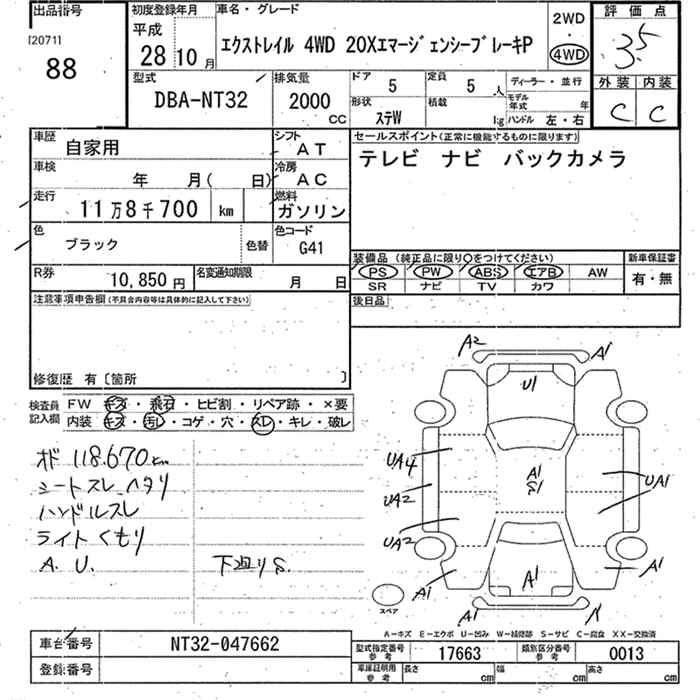 出品番号
[2071]
88
初度登録年月
平成
28 10 月
車名・グレード
エクストレイル 4WD 20XエマージェンシーブレーキP
2WD
・
4WD
評価点
3.5
外装 内装
C C
型式
DBA-NT32
排気量
2000
CC
ドア 5
定員 5 人
形状 ステW
積載 kg
ディーラー・並行
モデル年式 年
ハンドル 左・右
車歴 自家用
シフト AT
車検 年 月( 日)
冷房 AC
走行 11万8千700 km
燃料 ガソリン
色 ブラック 色替
色コード G41
R券 10,850円
名変通知期限 月 日
セールスポイント(正常に機能するものに限ります)
テレビ ナビ バックカメラ
装備品 (純正品に限り○をつけてください)
PS PW ABS エアB AW
SR ナビ TV カワ
新車保証書
有・無
後日品
注意事項申告欄(不具合内容等は具体的に記入して下さい)
修復歴 有〔箇所 〕
検査員記入欄
FW キズ・飛石・ヒビ割・リペア跡・×要
内装 キズ・汚レ・コゲ・穴・スレ・キレ・破レ
オド 118.670km
シートスレ ヘタリ
ハンドルスレ
ライトくもり
A. U. 下廻りS.
A2 A1
U1
UA4
A1
S1
UA1
UA2
UA2
A1 A1 A1
A1
スペア
A-キズ E-エクボ U-凹み W-補修跡 S-サビ C-腐食 XX-交換済
車台番号 NT32-047662
登録番号
型式指定番号 参考 17663
類別区分番号 参考 0013
車庫証明用 参考 長さ cm 幅 cm 高さ cm